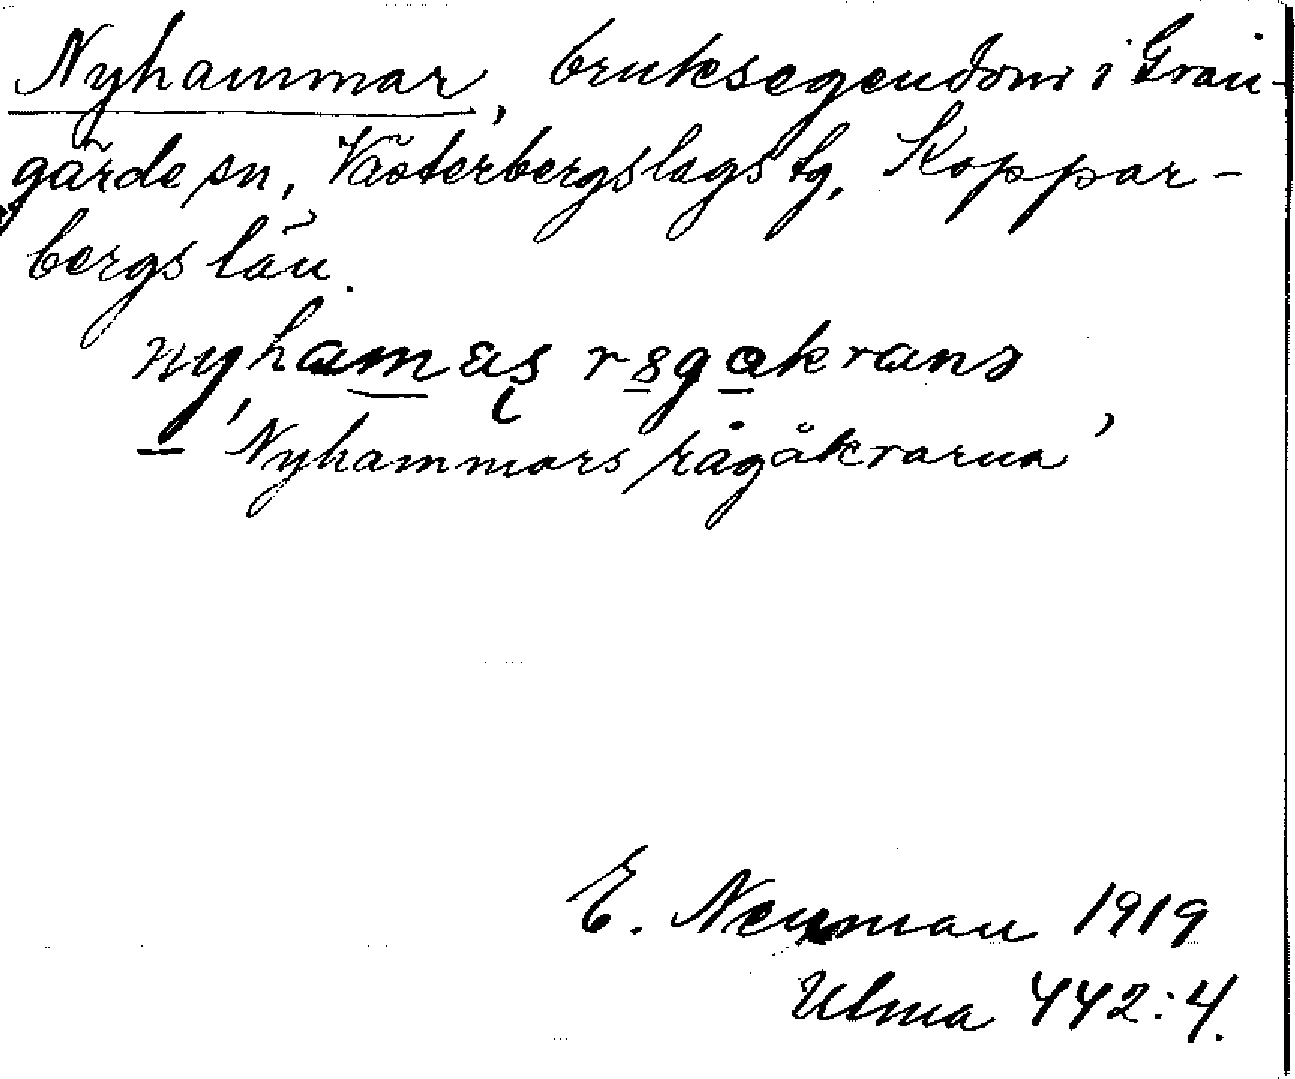 Nyhammar, bruksegendom i Gran-
gärde sn, Västerbergslags tg, Koppar-
bergs län.
nyhamas rsgakrana
'Nyhammars rågåkrarna'
E. Neuman 1919
Ulma 442:4.